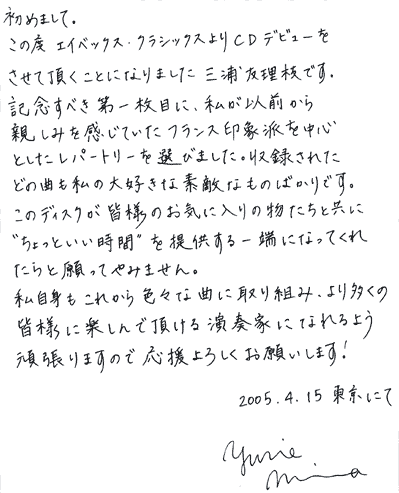 初めまして。
この度 エイベックス・クラシックスよりCDデビューを
させて頂くことになりました 三浦友理枝です。
記念すべき第一枚目に、私が以前から
親しみを感じていたフランス印象派を中心
としたレパートリーを選びました。収録された
どの曲も私の大好きな素敵なものばかりです。
このディスクが皆様のお気に入りの物たちと共に
"ちょっといい時間"を提供する一端になってくれ
たらと願ってやみません。
私自身もこれから色々な曲に取り組み、より多くの
皆様に楽しんで頂ける演奏家になれるよう
頑張りますので応援よろしくお願いします!
2005.4.15 東京にて
Yurie
Miura